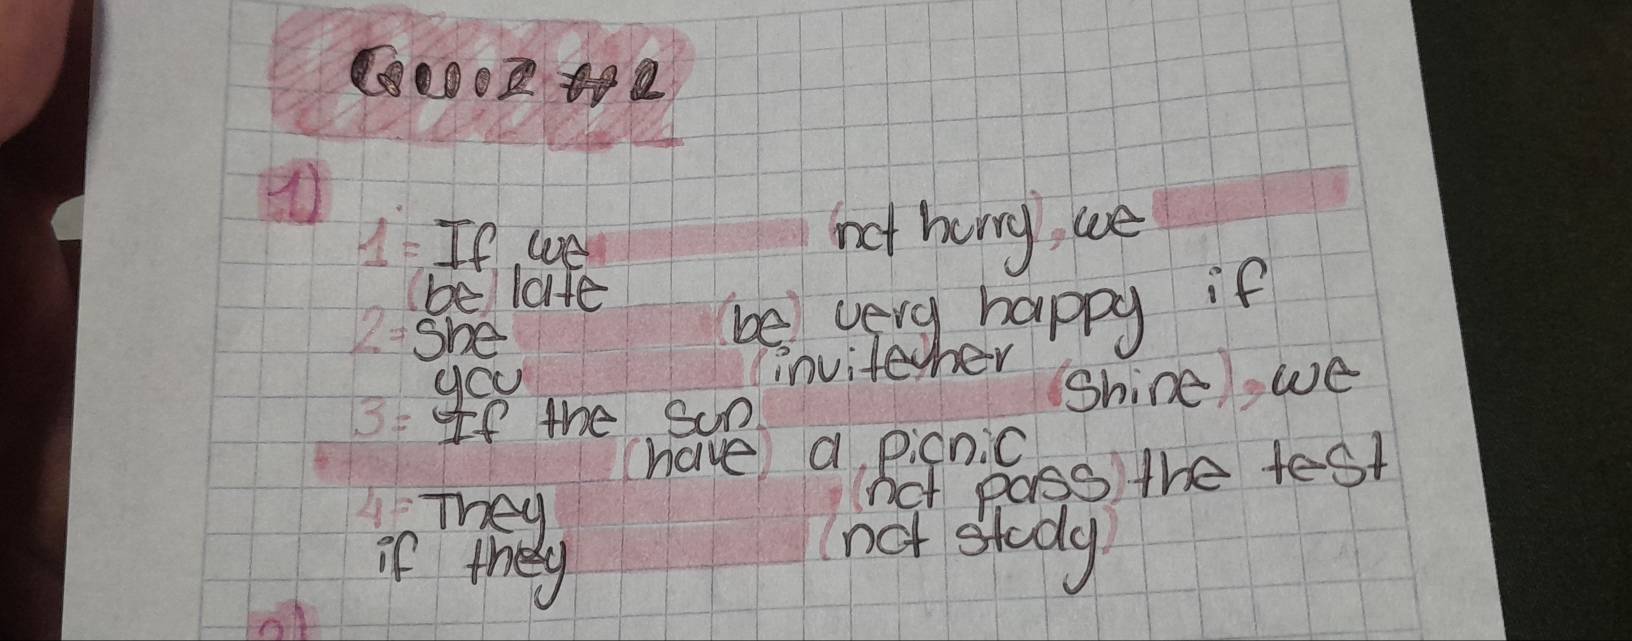 Quiz #2
1)
1= If we (not hurry), we
(be) late
2= She (be) very happy if
you (invite) her
3= If the sun (shine), we
(have) a picnic
4= They (not pass) the test
if they (not study)
2)